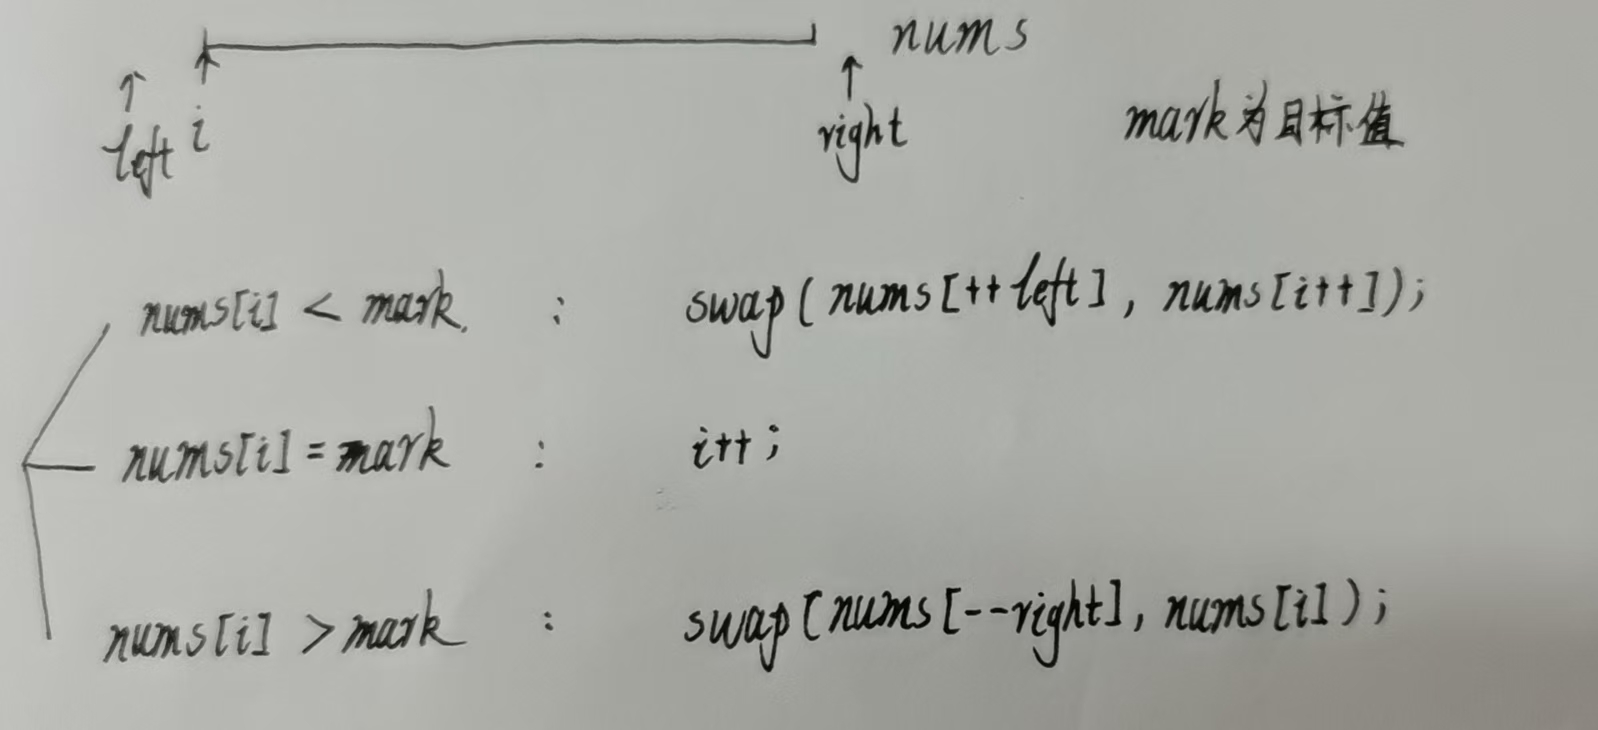 nums
left i right mark为目标值
nums[i] < mark : swap(nums[++left], nums[i++]);
nums[i] = mark : i++;
nums[i] > mark : swap[nums[--right], nums[i]);